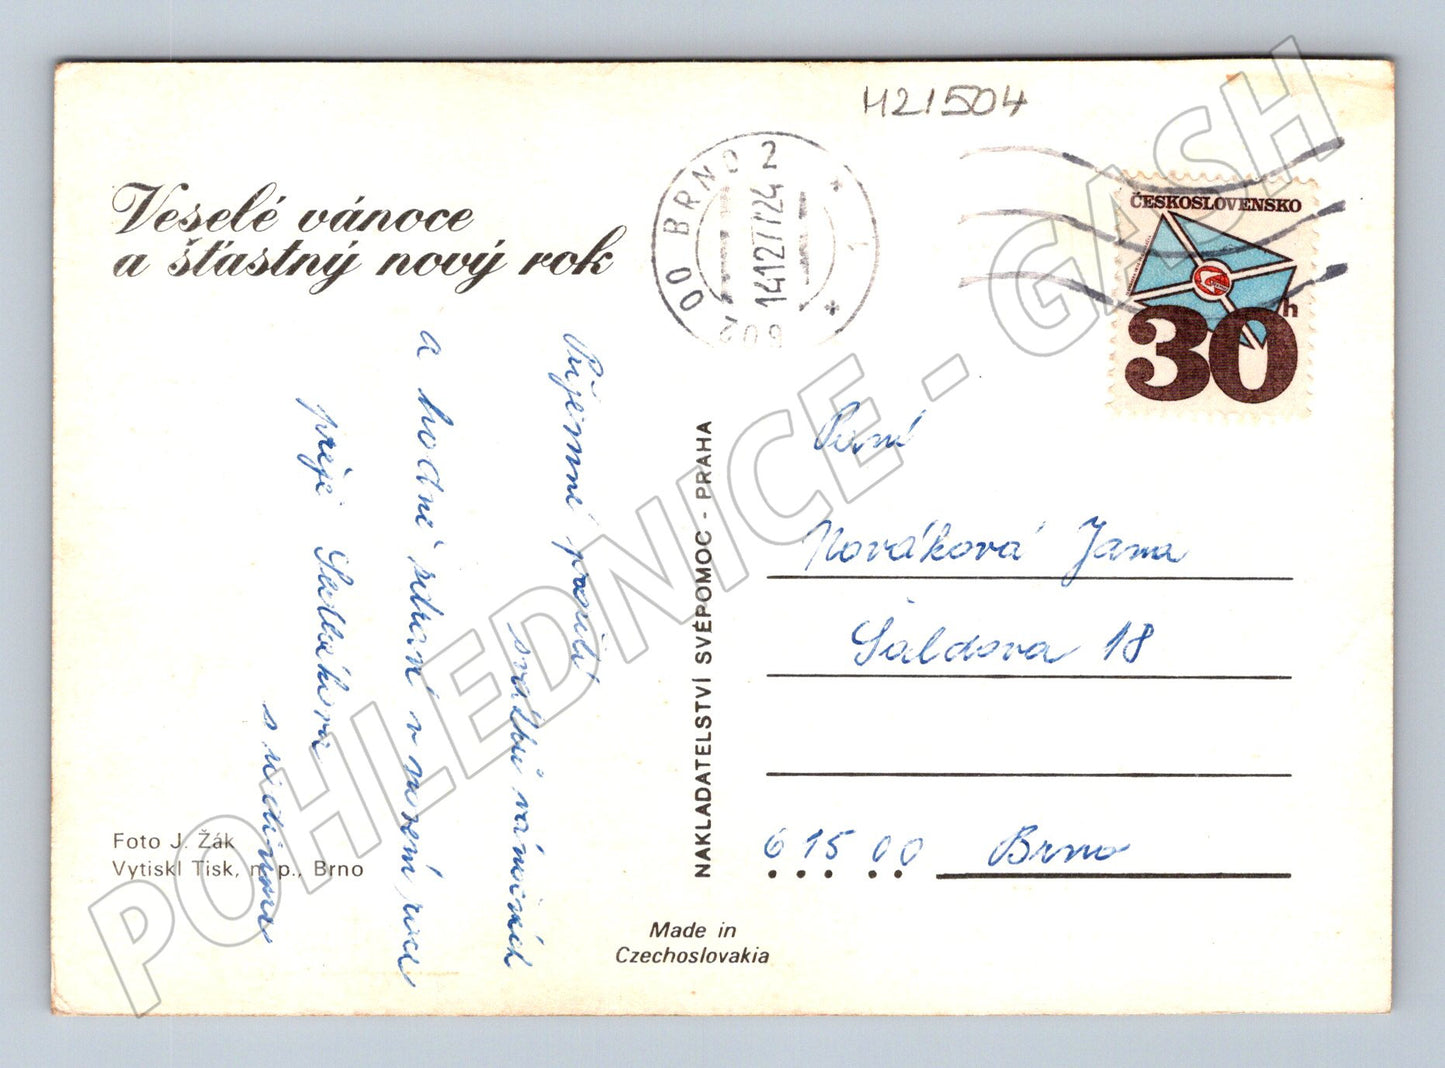 H21504
Veselé vánoce
a šťastný nový rok
602 00 BRNO 2
14.12.77.24
1
ČESKOSLOVENSKO
30h
Příjemné prožití
svátků vánočních
a hodně zdraví v novém roce
přeje Sedláková
s rodinou
Paní
Nováková Jana
Šaldova 18
615 00 Brno
NAKLADATELSTVÍ SVÉPOMOC - PRAHA
Foto J. Žák
Vytiskl Tisk, n. p., Brno
Made in
Czechoslovakia
POHLEDNICE - GASH